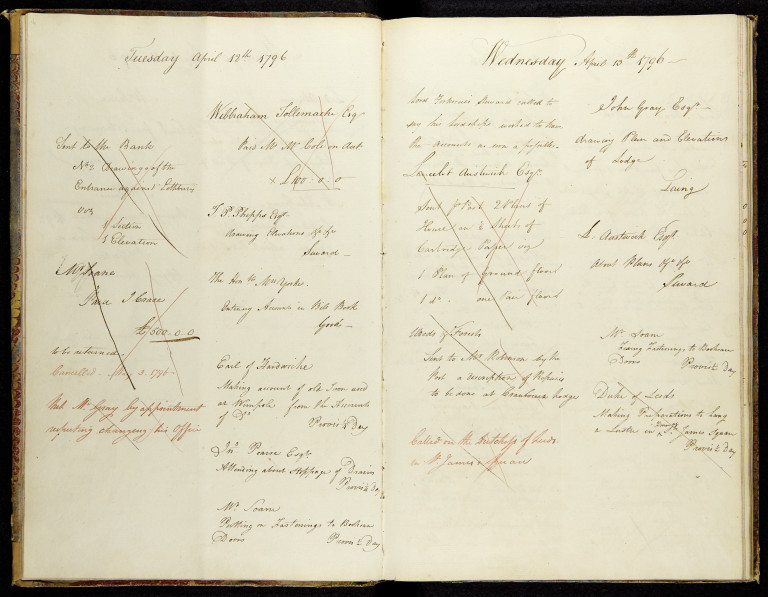 Tuesday April 12th 1796
Sent to the Bank
No 2 Drawings of the
Entrance against Lothbury
viz
1 Section
1 Elevation
Mrs Soane
Paid J Grace
£500-0-0
to be returned
Cancelled - May 2. 1796
Met Mr Gray by appointment
respecting changing his Office
Wilbraham Tollemache Esqr
Paid Mr McCole on Acct
£100:0:0
T P Phipps Esqr
Drawing Elevations &c &c
Seward
The Honble Mrs Yorke
Entering Accounts in Bill Book
Good
Earl of Hardwicke
Making account of old Iron used
at Wimpole from the Accounts
of Do Provis ½ Day
Jno Pearse Esqr
Attending about Stoppage of Drains
Provis ½ Day
Mr Soane
Putting on Fastenings to Bookcase
Doors Provis ½ Day
Wednesday April 13th 1796
Lord Fortescues Steward called to
say his Lordship wished to have
the Accounts as soon as possible
Lancelot Austwick Esqr
Sent Post 2 Plans of
House on ½ Sheets of
Cartridge Paper viz
1 Plan of ground floor
1 do. one Pair floor
Woods & Forests
Sent to Mr Robinson by the
Post a description of Repairs
to be done at Cranbourn Lodge
Called on the Dutchess of Leeds
in St James's Square
John Gray Esqr
drawing Plan and Elevations
of Lodge
Laing
L. Austwick Esqr
About Plans &c &c
Seward
Mr Soane
Fixing Fastenings to Bookcase
Doors Provis ½ Day
Duke of Leeds
Making Preparations to hang
a Lustre in House St. James Square
Provis ½ Day